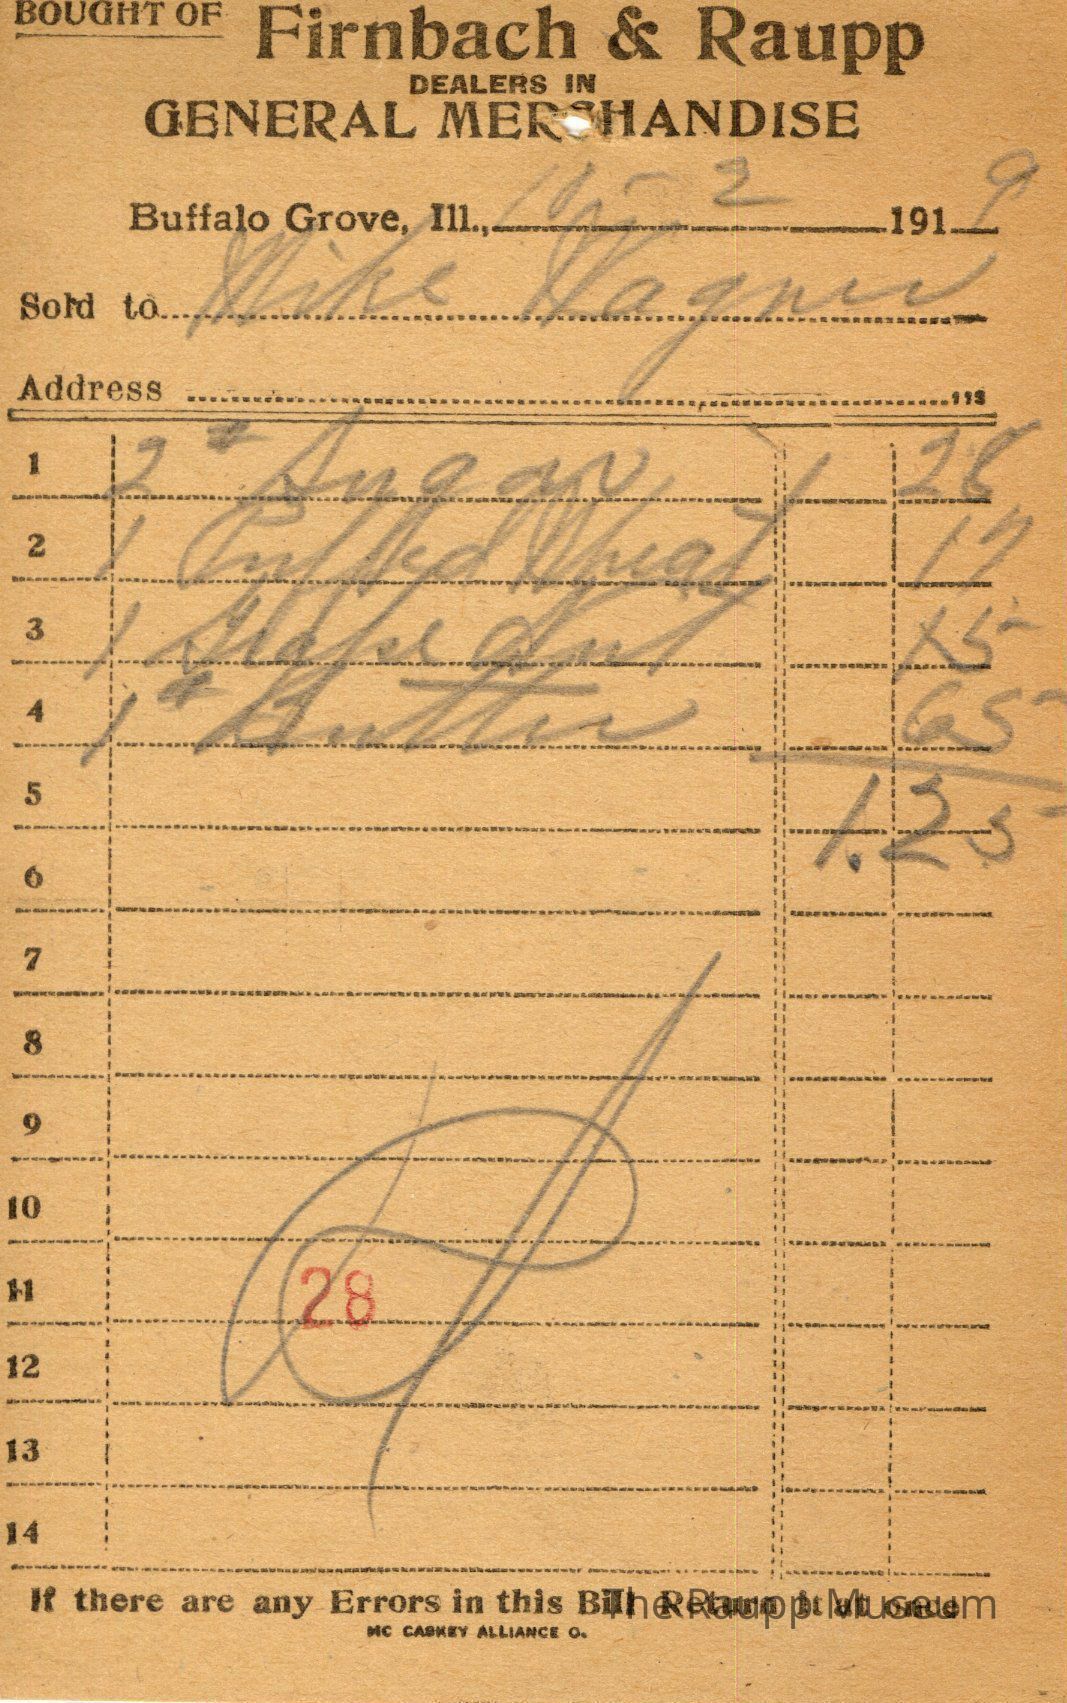 BOUGHT OF Firnbach & Raupp
DEALERS IN
GENERAL MERCHANDISE
Buffalo Grove, Ill., 2 1919
Sold to Mike Wagner
Address
1 2 # Sugar 28
2 1 Puffed Wheat 17
3 1 Grape Nut 15
4 1 # Butter 65
5 1.25
6
7
8
9
10
11 28
12
13
14
If there are any Errors in this Bill Return it at once
The Raupp Museum
MC CASKEY ALLIANCE O.